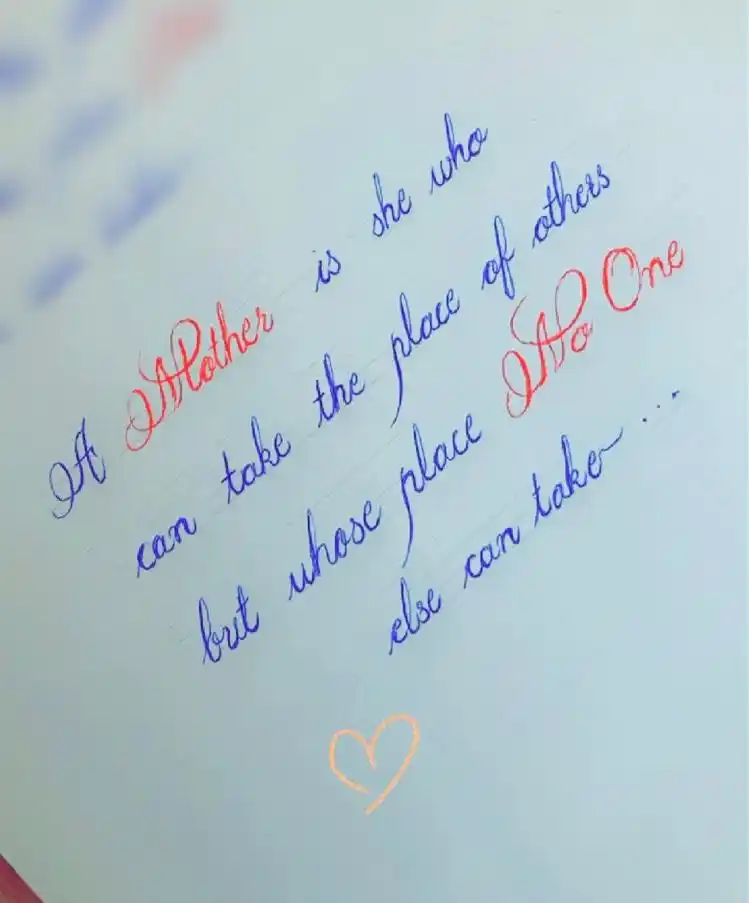 A Mother is she who
can take the place of others
but whose place No One
else can take...